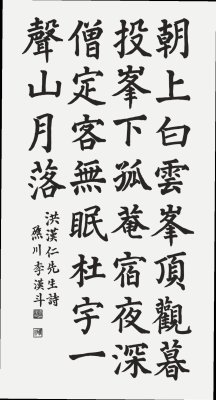 朝上白雲峯頂觀暮
投峯下孤菴宿夜深
僧定客無眠杜宇一
聲山月落
洪漢仁先生詩
雁川李漢斗